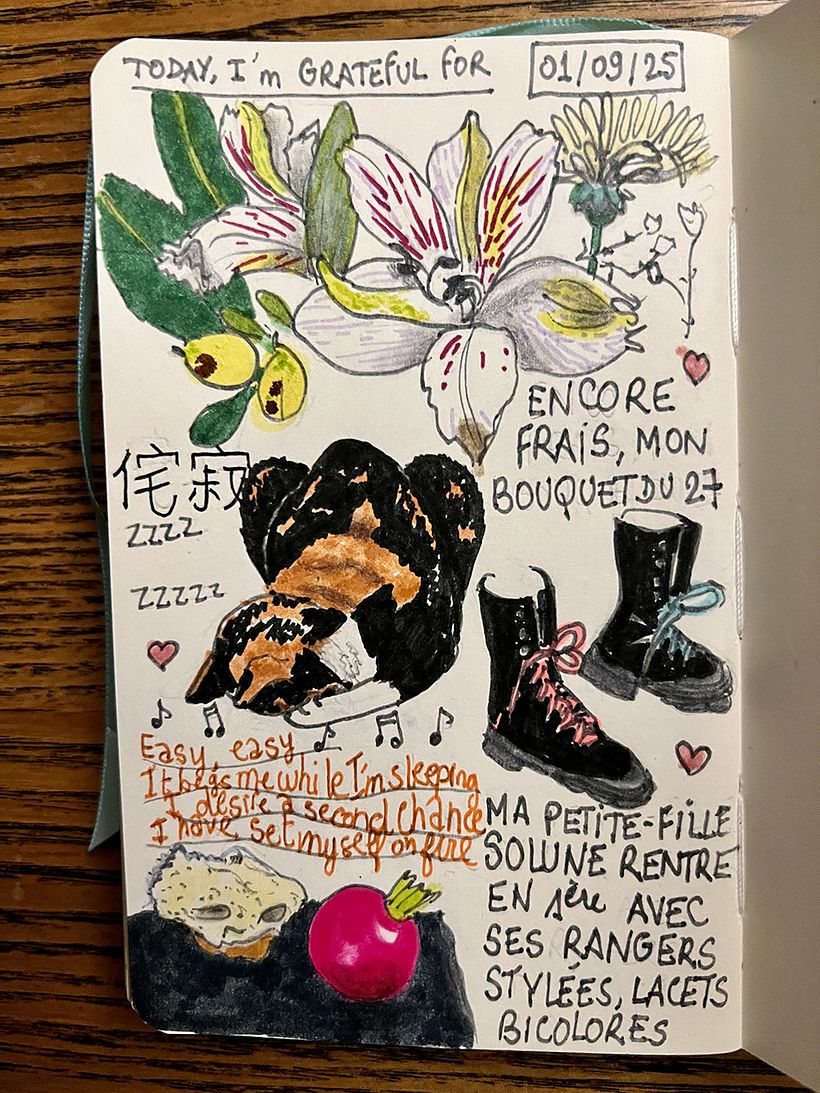 TODAY, I'm GRATEFUL FOR
01/09/25
ENCORE
FRAIS, MON
BOUQUET DU 27
侘寂
ZZZZ
ZZZZZ
Easy, easy
It begs me while I'm sleeping
I desire a second chance
I have set myself on fire
MA PETITE-FILLE
SOLUNE RENTRE
EN 1ère AVEC
SES RANGERS
STYLÉES, LACETS
BICOLORES